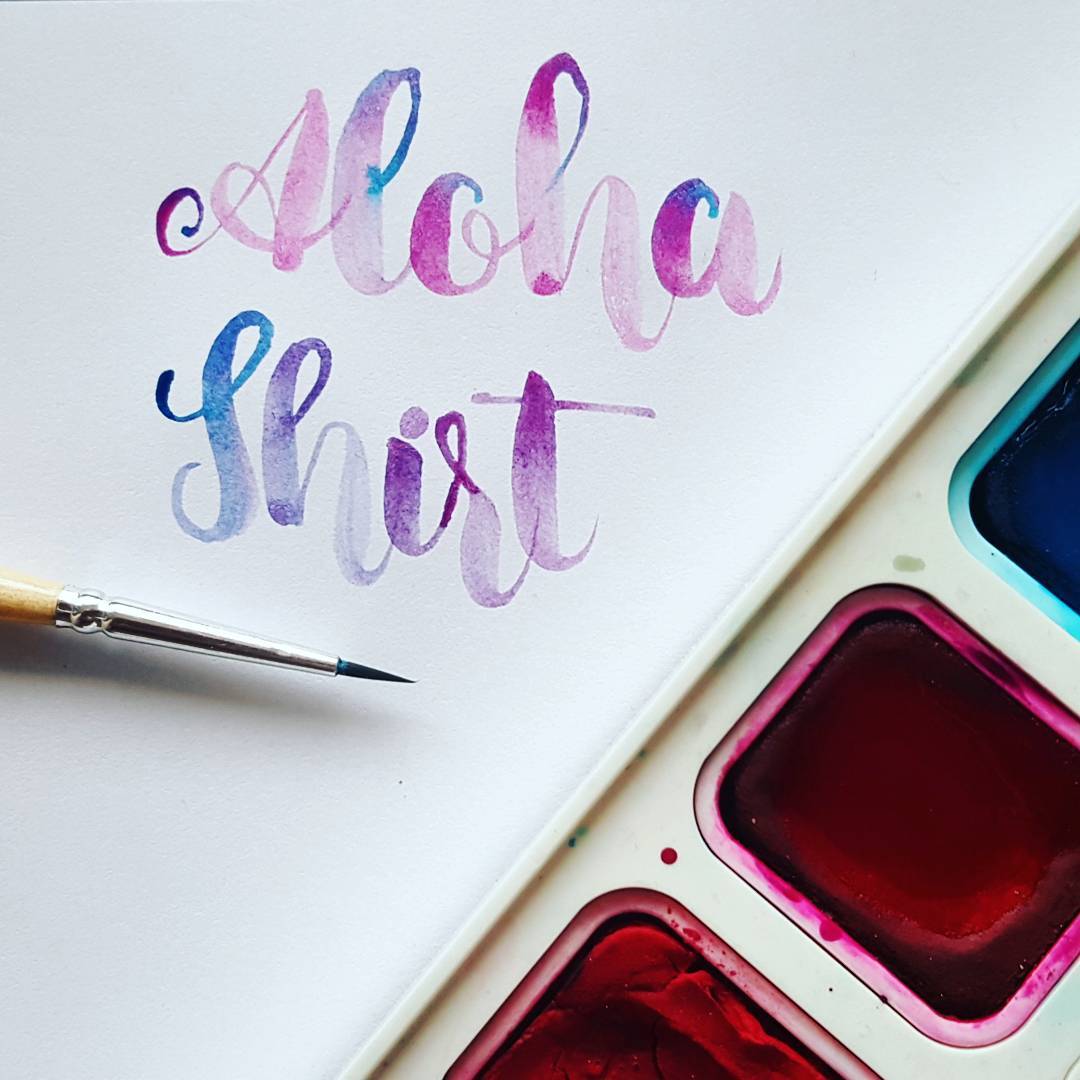 Aloha
Shirt